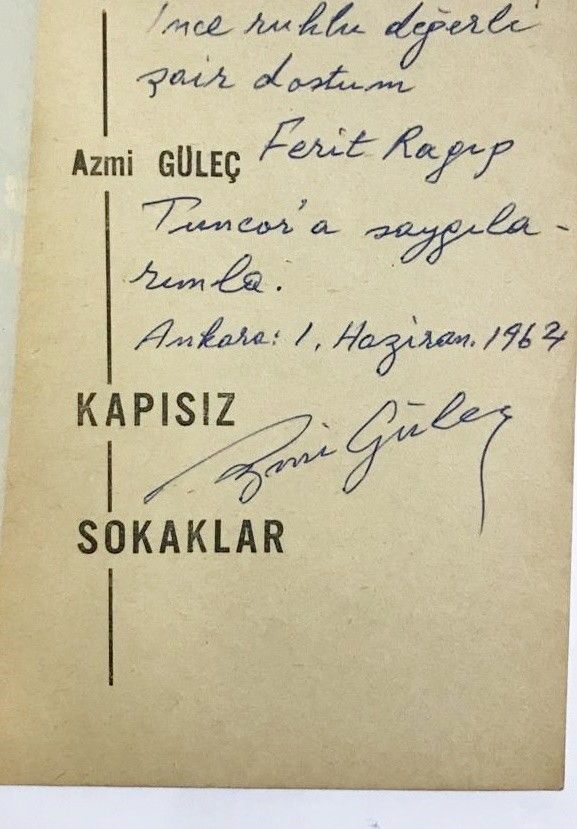 İnce ruhlu değerli
şair dostum
Ferit Ragıp
Azmi GÜLEÇ
Tuncor'a saygıla-
rımla.
Ankara: 1. Haziran. 1964
KAPISIZ
Azmi Güleç
SOKAKLAR